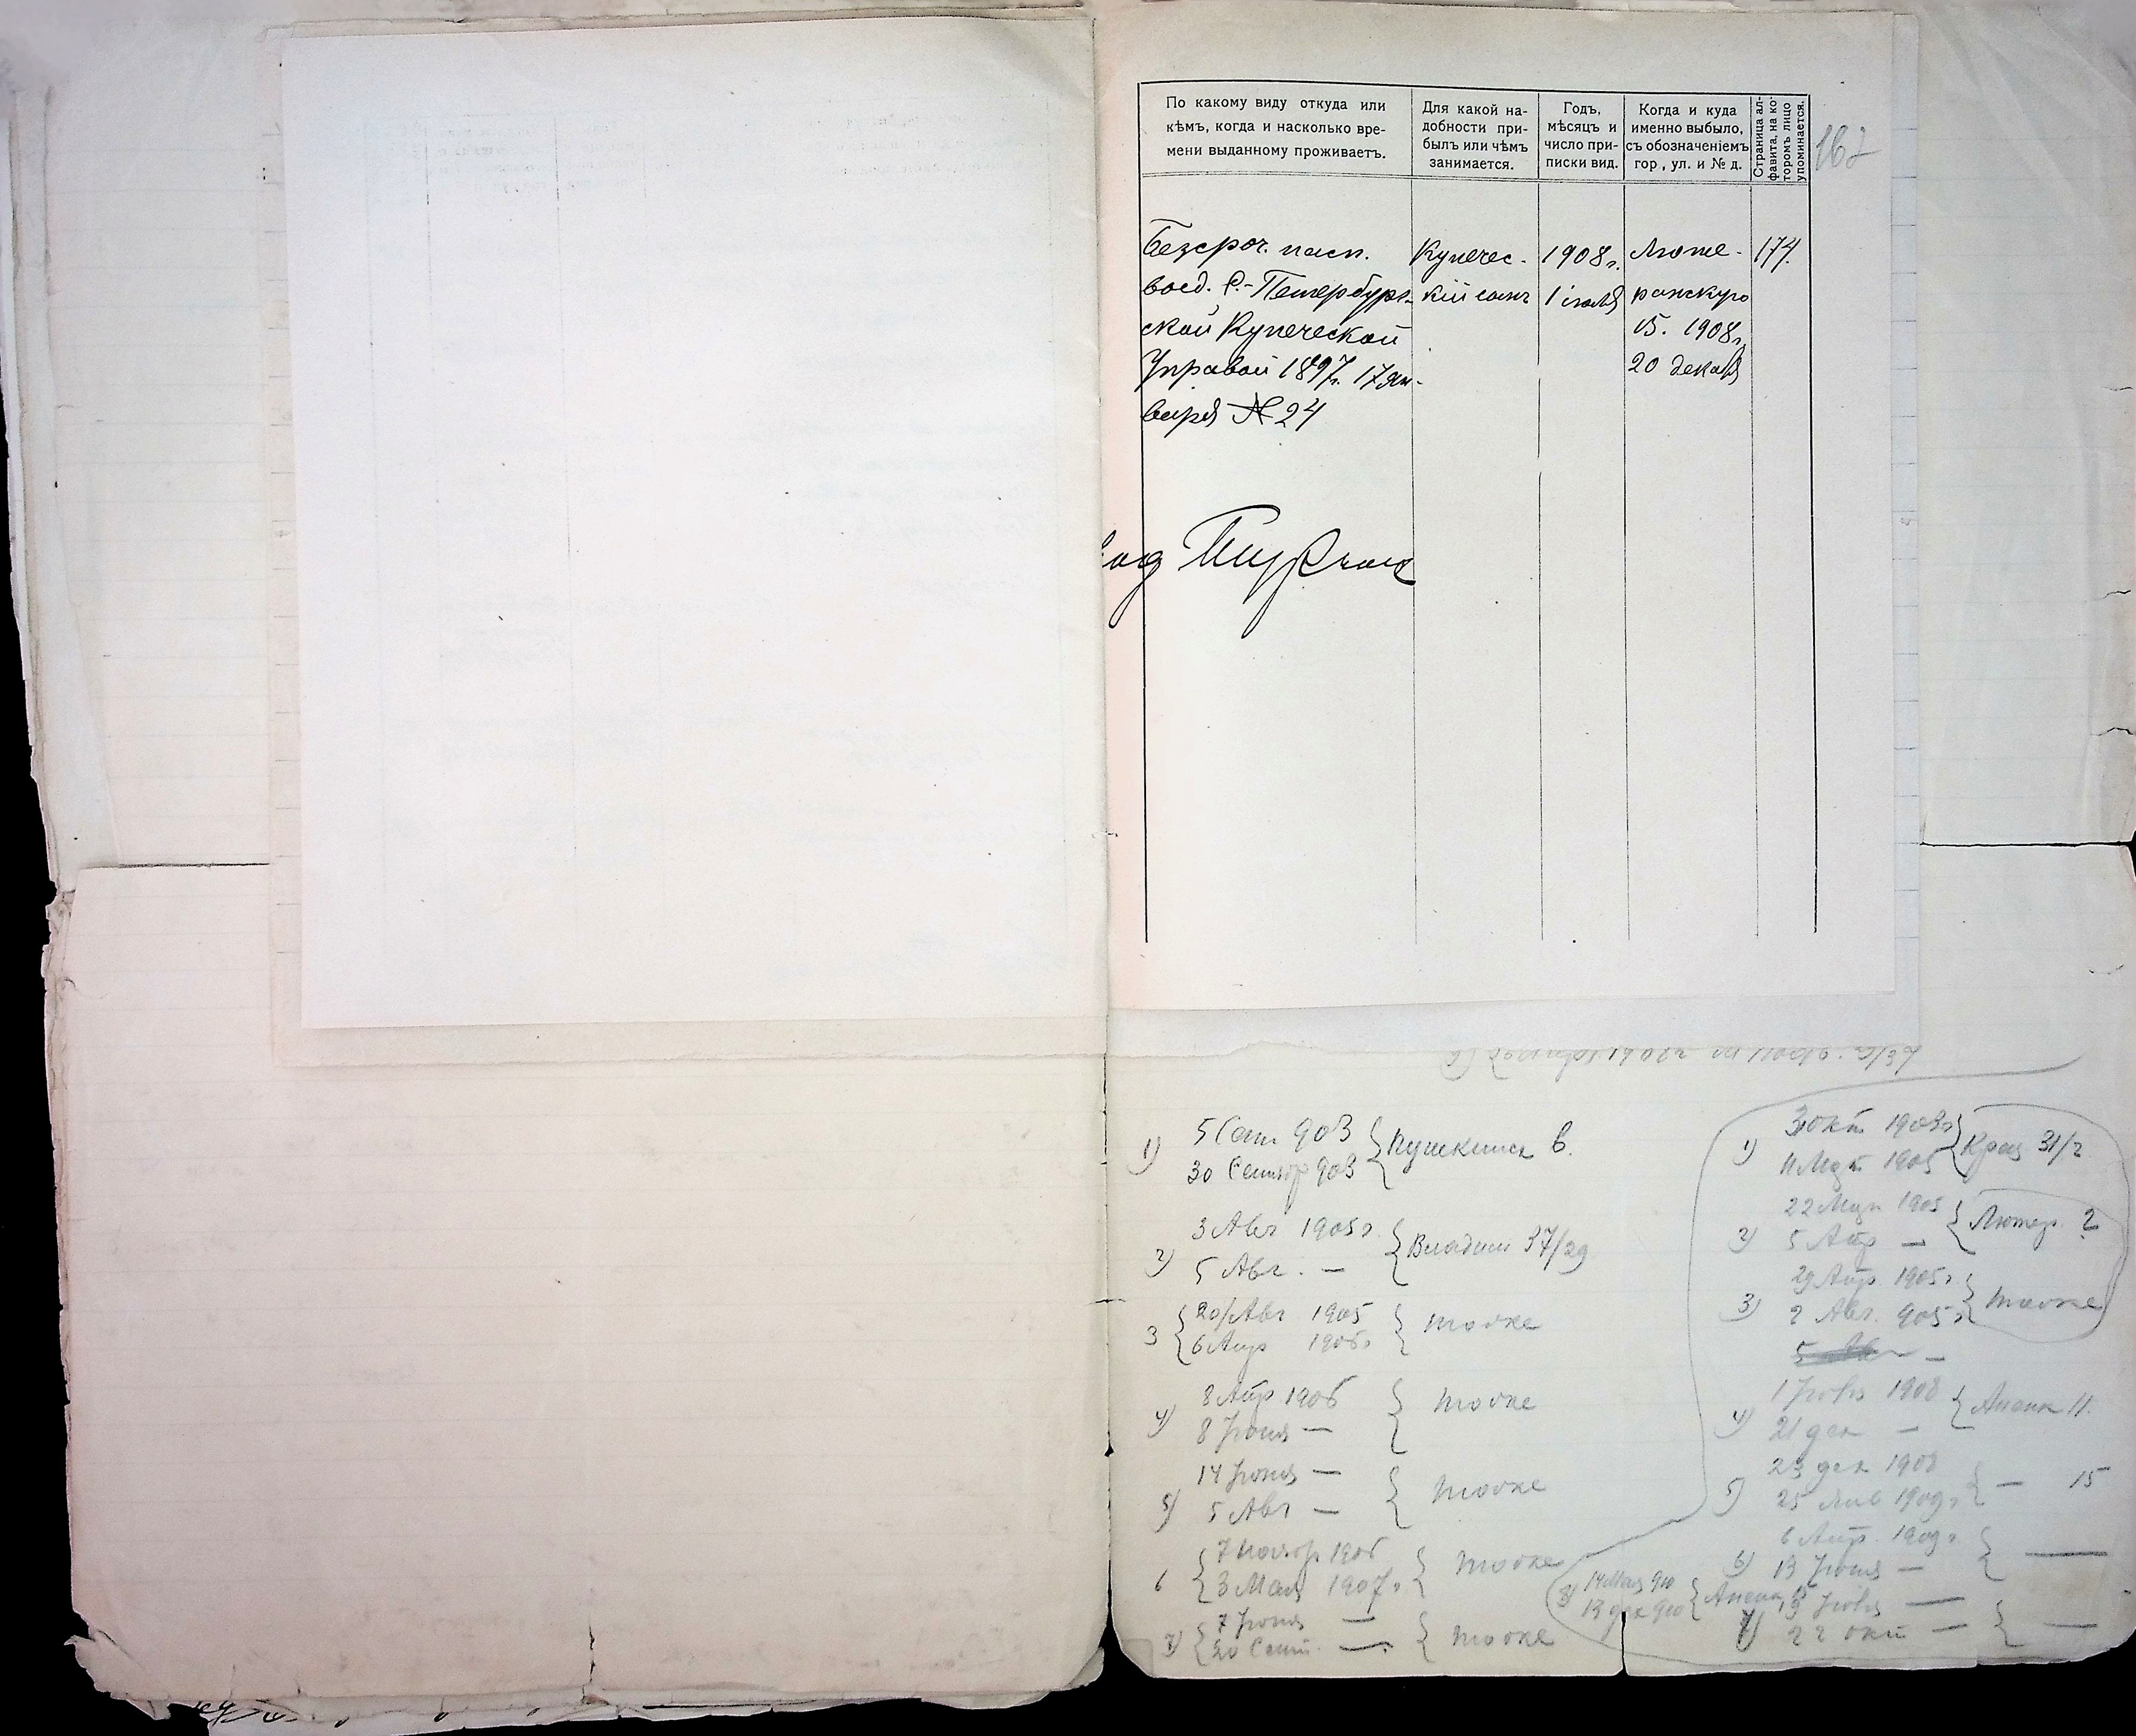 По какому виду откуда или
кѣмъ, когда и насколько вре-
мени выданному проживаетъ.
Для какой на-
добности при-
былъ или чѣмъ
занимается.
Годъ,
мѣсяцъ и
число при-
писки вид.
Когда и куда
именно выбыло,
съ обозначеніемъ
гор., ул. и № д.
Страница ал-
фавита, на ко-
торомъ лицо
упоминается.
162
Безсроч. пасп.
выд. С.-Петербург-
ской Купеческой
Управой 1897г. 17 ян-
варя № 24
Купечес-
кій сынъ
1908г.
1 іюля
Люте-
ранскую
15. 1908г.
20 декабря
174.
1) 5 Сент 903
30 Сентяб 903
Пушкинск 6.
2) 3 Авг 1905г
5 Авг. —
Владим 37/29
3 20/Авг 1905
6 Апр 1906г
тоже
4) 8 Апр 1906
8 Іюня —
тоже
5) 14 Іюня —
5 Авг —
тоже
6 7 Ноябр 1906
3 Мая 1907г
тоже
7) 7 Іюня —
20 Сент. —
тоже
1) 3 Окт 1903г
11 Март 1905
31/2
2) 22 Мар 1905
5 Апр —
Лютер. 2
3) 29 Апр. 1905г
2 Авг. 905г
тоже
4) 1 Іюля 1908
21 дек —
Аненк 11.
5) 23 дек 1908
25 Янв 1909г
— 15
6) 6 Апр. 1909г
13 Іюня —
—
7) 13 Іюля —
22 окт —
—
8) 14 Мая 910
13 дек 910
Аненк